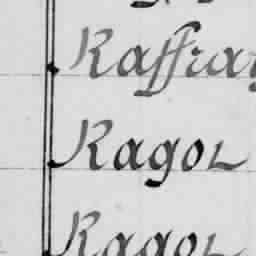 Raffray
Ragot
Ragot